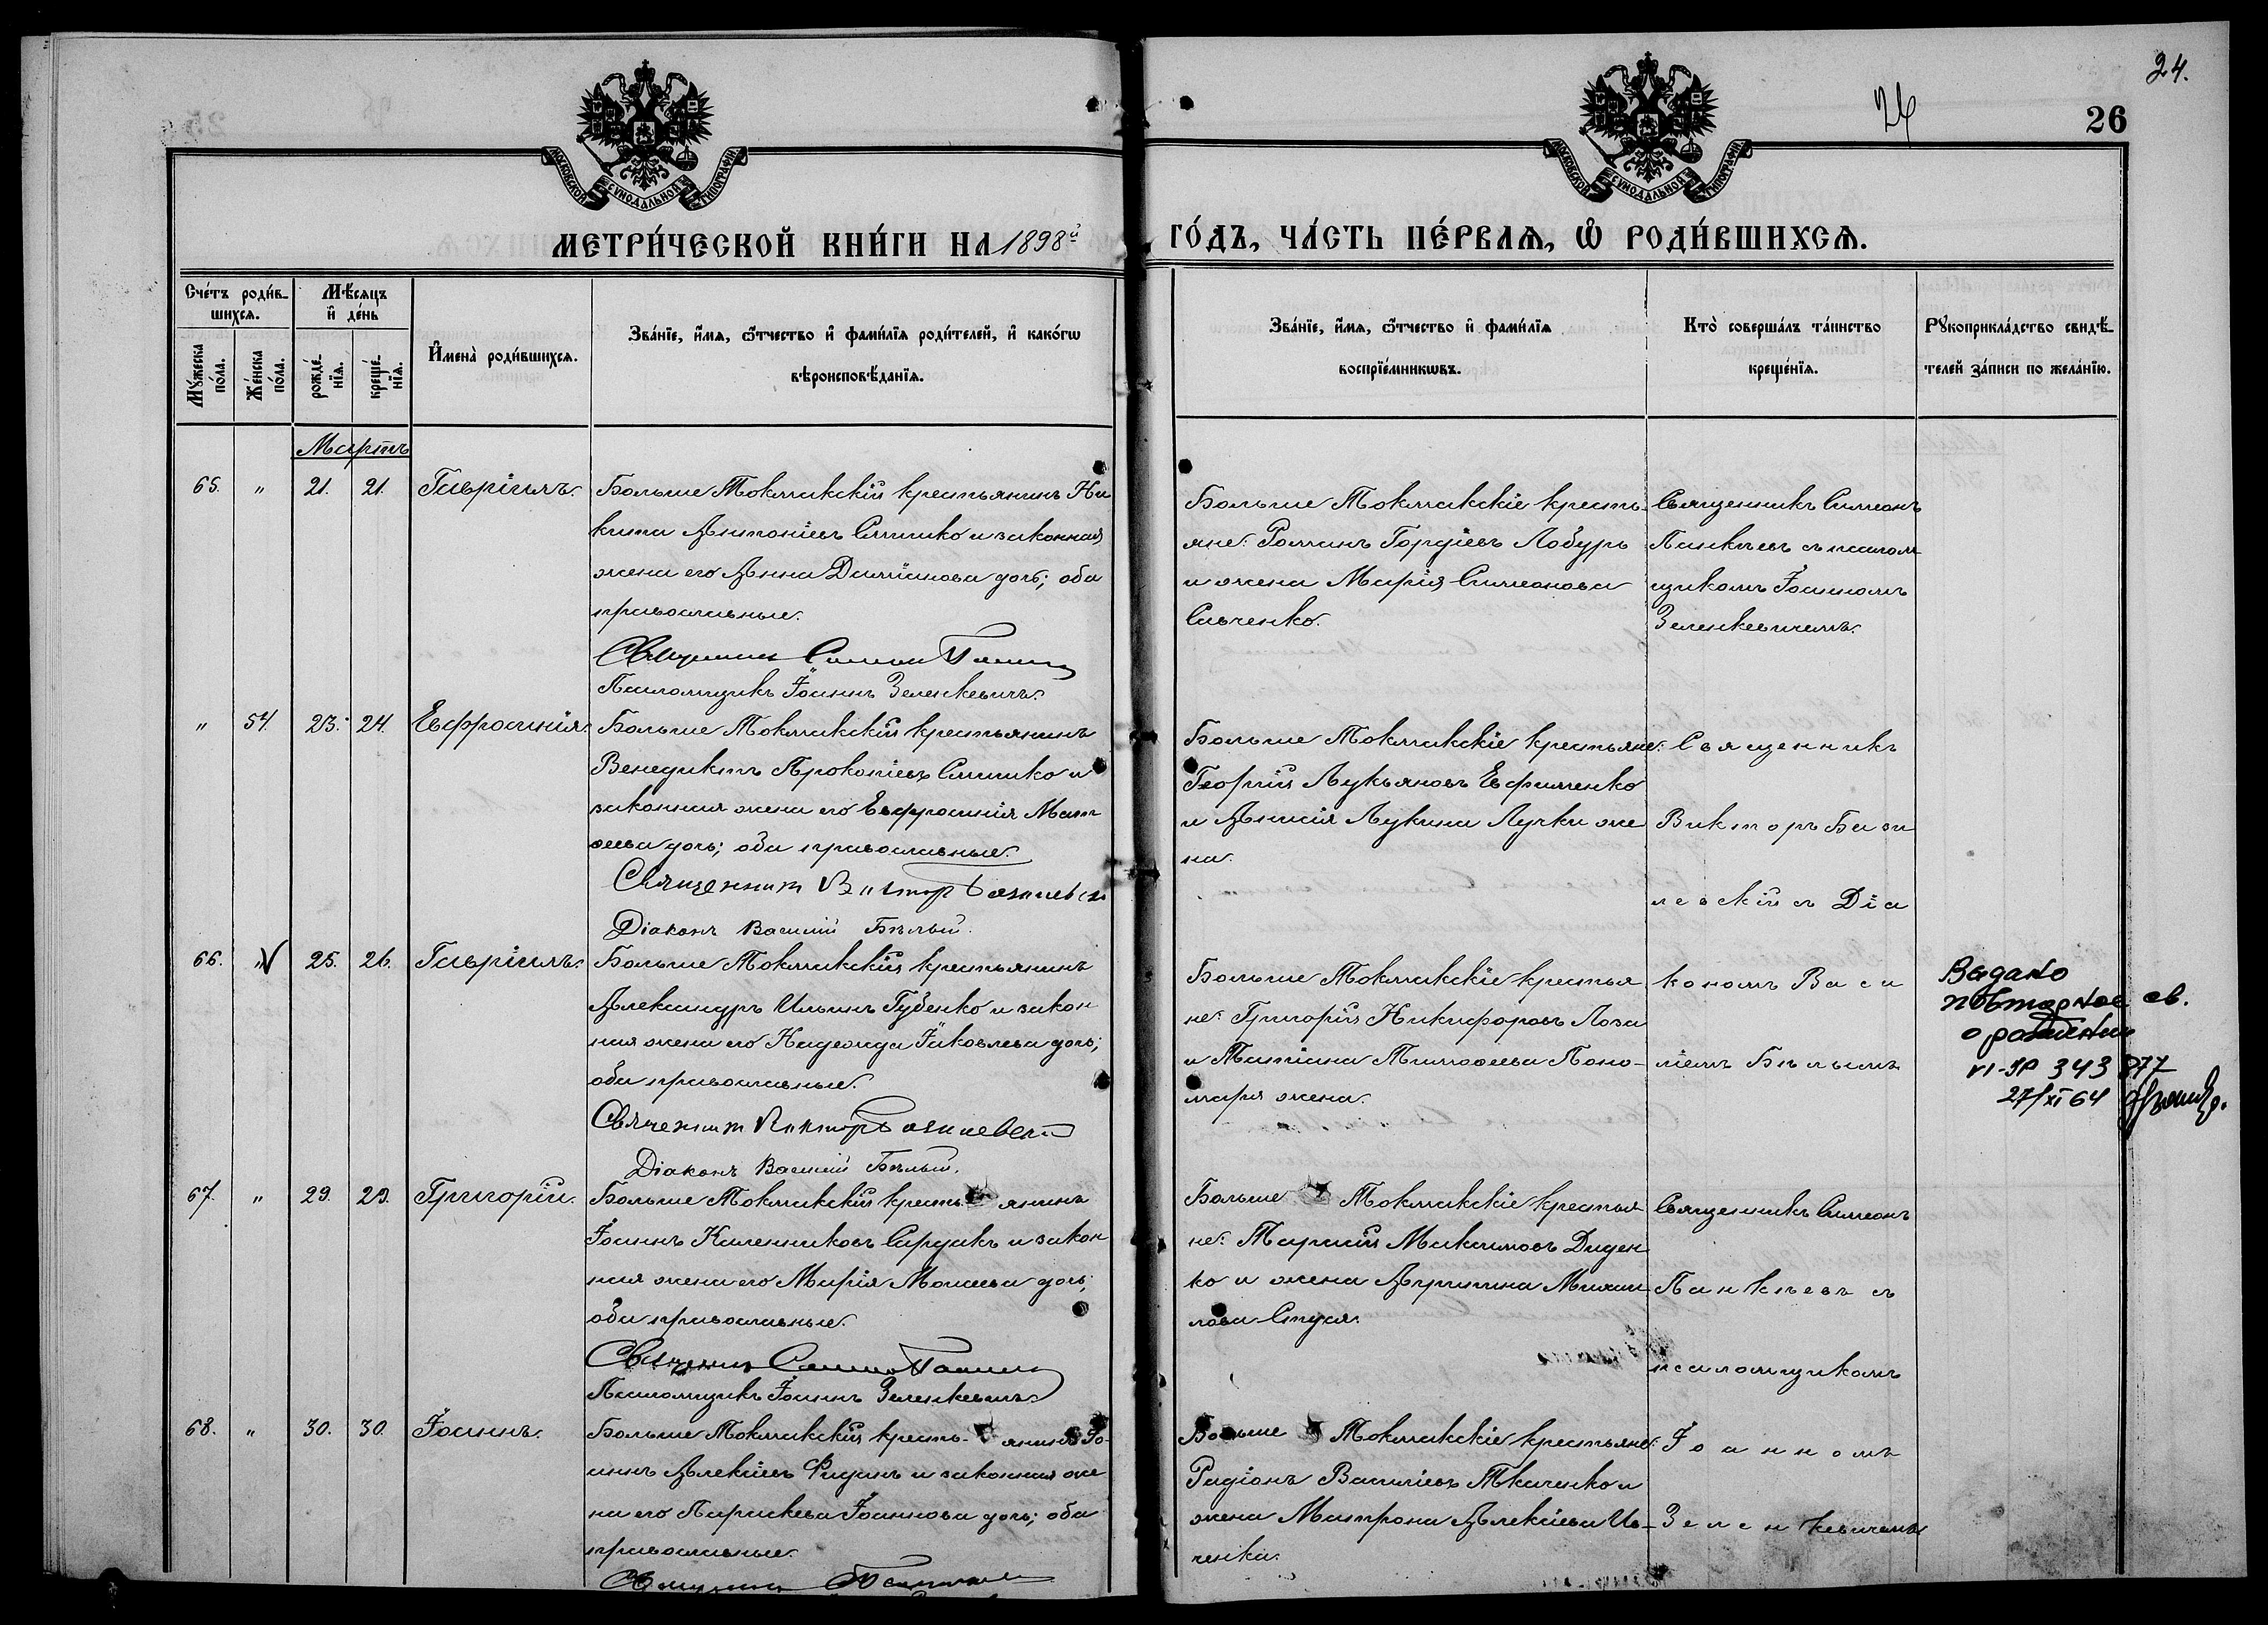 24.
26
26
МОСКОВСКОЙ СѴНОДАЛЬНОЙ ТИПОГРАФІИ
МОСКОВСКОЙ СѴНОДАЛЬНОЙ ТИПОГРАФІИ
МЕТРИ́ЧЕСКОЙ КНИ́ГИ НА 1898й
ГО́ДЪ, ЧА́СТЬ ПЕ́РВАѦ, Ѡ҆ РОДИ́ВШИХСѦ.
Сче́тъ роди́в-
шихсѧ.
Мꙋ́жеска
по́ла.
Же́нска
по́ла.
Мѣ́сѧцъ
и҆ де́нь
рожде́-
нїѧ.
креще́-
нїѧ.
И҆мена̀ роди́вшихсѧ.
Зва́нїе, и҆́мѧ, ѻ҆́тчество и҆ фами́лїѧ роди́телей, и҆ како́гѡ
вѣроисповѣ́данїѧ.
Зва́нїе, и҆́мѧ, ѻ҆́тчество и҆ фами́лїѧ
воспрїе́мникѡвъ.
Кто̀ соверша́лъ та́инство
креще́нїѧ.
Рꙋкоприкла́дство свидѣ́-
телей за́писи по жела́нїю.
Мартъ
65. " 21. 21. Гавріилъ.
Больше Токмакскій крестьянинъ Ни
кита Антоніевъ Слишко и законная
жена его Анна Даміанова дочь; оба
православные.
Священникъ Симеонъ
Псаломщикъ Іоаннъ Зеленкевичъ.
Больше Токмакскіе кресть-
яне: Романъ Гордіевъ Лобурь
и жена Марія Симеонова
Савченко.
Священникъ Симеонъ
Панкѣевъ съ псалом
щикомъ Іоанномъ
Зеленкевичемъ.
" 54. 23. 24. Евфросинія.
Больше Токмакскій крестьянинъ
Венедиктъ Прокопіевъ Слишко и
законная жена его Евфросинія Мат
ѳеева дочь; оба православные.
Священник Виктор Базилевск
Діаконъ Василій Бѣлый.
Больше Токмакскіе крестьяне:
Георгій Лукьяновъ Евфименко
и Анисія Лукина Лучки же
на.
Священникъ
Викторъ Бази
левскій съ Діа
66. " V 25. 26. Гавріилъ.
Больше Токмакскій крестьянинъ
Александръ Ильинъ Губенко и закон
ная жена его Надежда Іаковлева дочь;
оба православные.
Священник Виктор Базилевский
Діаконъ Василій Бѣлый.
Больше Токмакскіе крестья
не: Григорій Никифоровъ Лоза
и Татіана Тимоѳеева Поно-
маря жена.
кономъ Васи
ліемъ Бѣлымъ
Выдано
повторное св.
о рождении
VI-ЯР 343 877
27/XI 64
67. " 29. 29. Григорій.
Больше Токмакскій кресть янинъ
Іоаннъ Каленниковъ Сардакъ и закон
ная жена его Марія Моисеева дочь;
оба православные.
Священникъ Симеонъ
Псаломщикъ Іоаннъ Зеленкевичъ
Больше Токмакскіе крестья
не: Тарасій Максимовъ Диден
ко и жена Агрипина Михаи
лова Стуся.
Священникъ Симеонъ
Панкѣевъ съ
псаломщикомъ
68. " 30. 30. Іоаннъ.
Больше Токмакскій кресть- янинъ Іо-
аннъ Алексіевъ Фидинъ и законная же
на его Параскева Іоаннова дочь; оба
православные.
Больше Токмакскіе крестьяне:
Радіонъ Василіевъ Ткаченко и
жена Матрона Алексіева Ив-
ченка.
Іоанномъ
Зеленкевичемъ